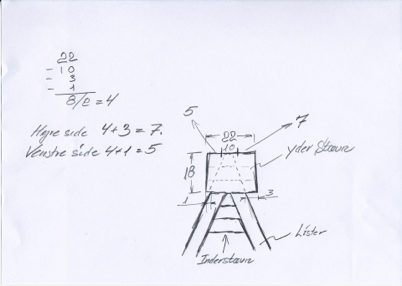 22
- 10
- 3
- 1
8/2 = 4
Højre side 4+3 = 7.
Venstre side 4+1 = 5
5
7
22
10
18
1
3
yder Stævn
Lister
Inderstævn